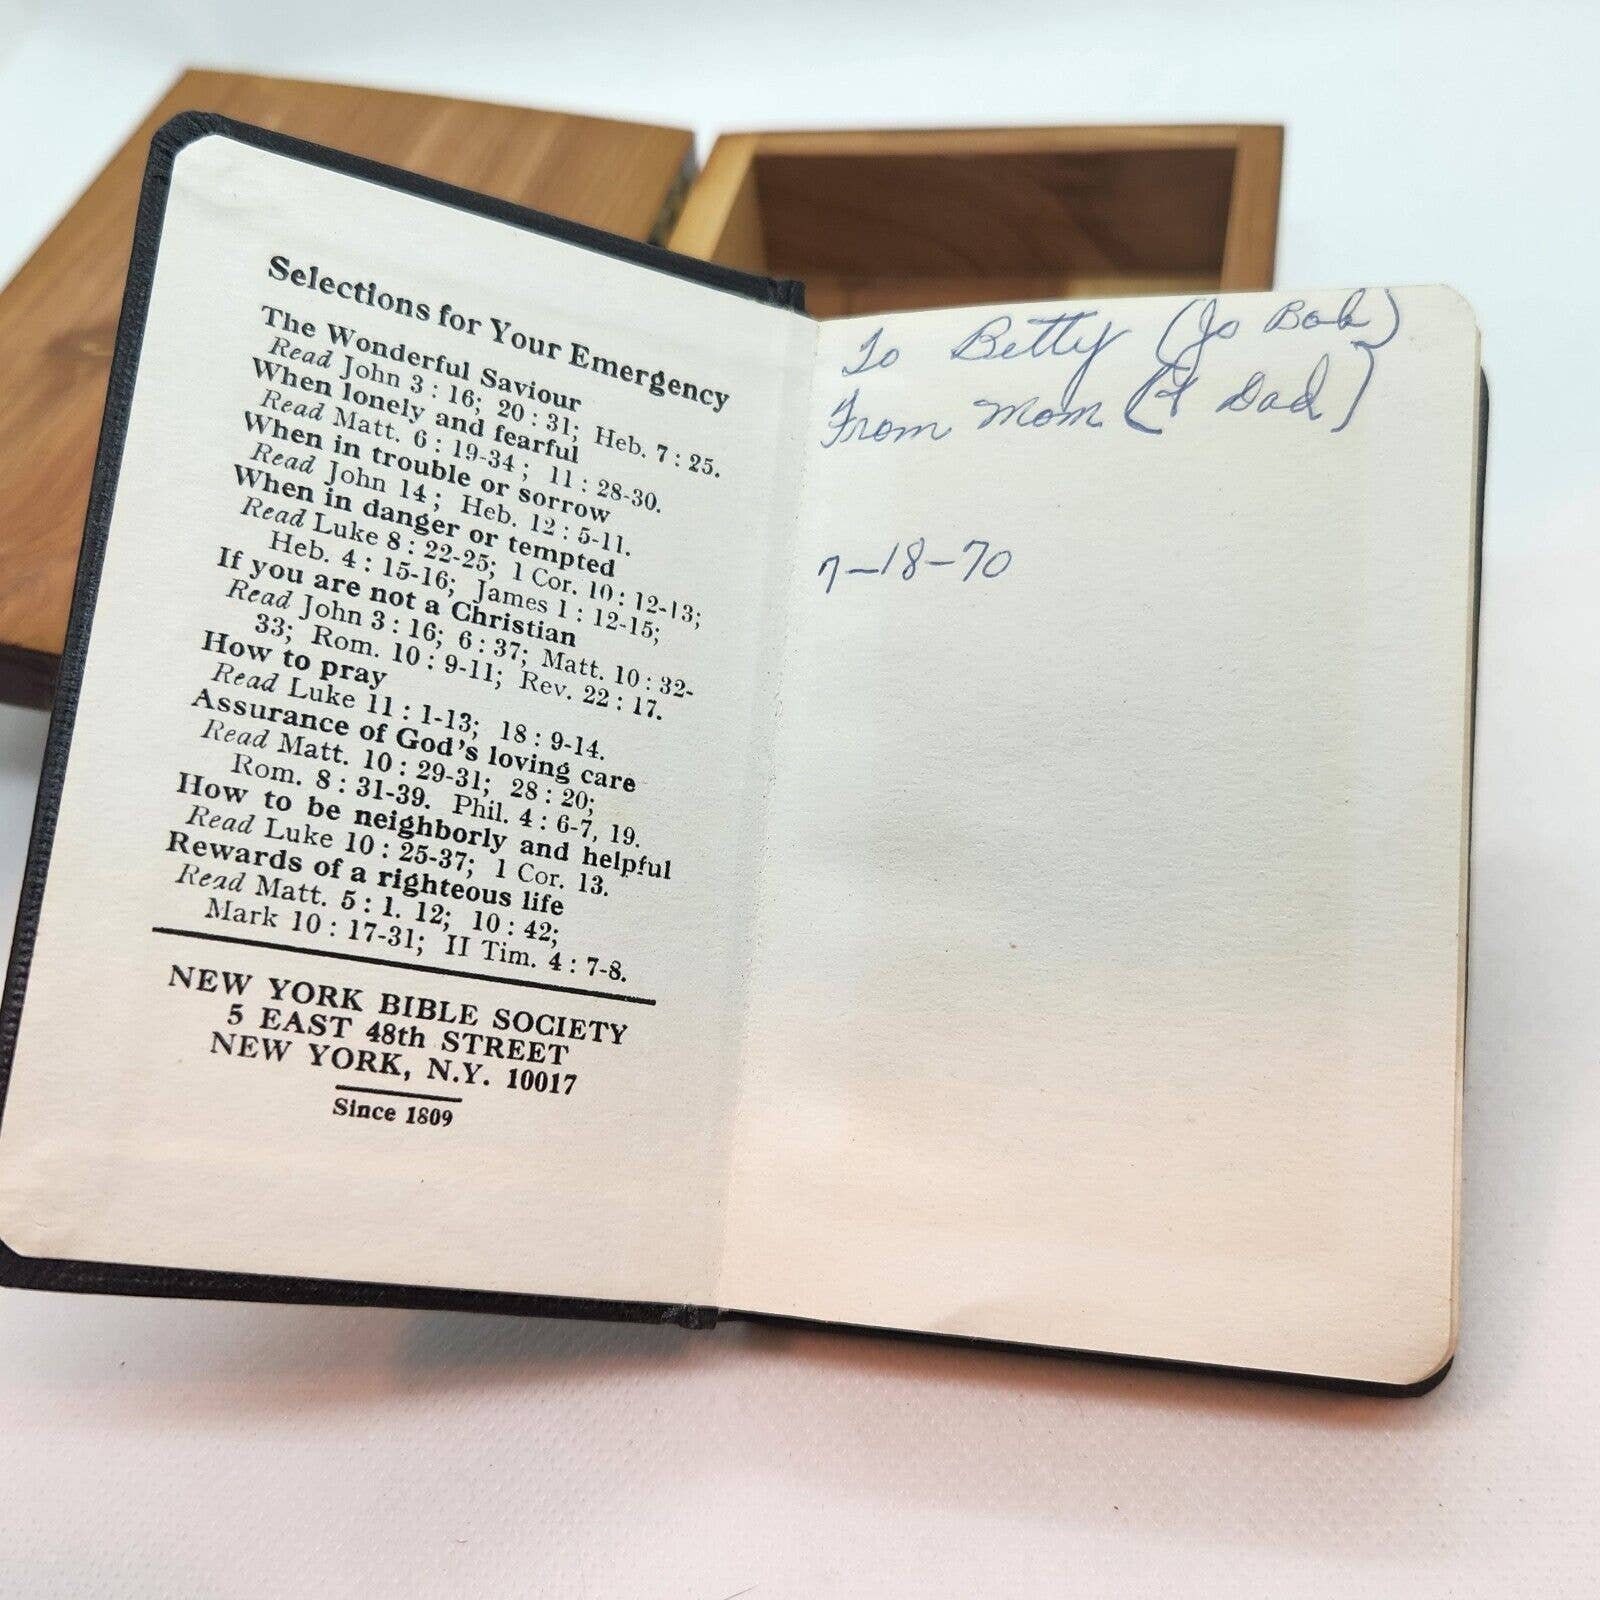 Selections for Your Emergency
The Wonderful Saviour
Read John 3 : 16; 20 : 31; Heb. 7 : 25.
When lonely and fearful
Read Matt. 6 : 19-34 ; 11 : 28-30.
When in trouble or sorrow
Read John 14 ; Heb. 12 : 5-11.
When in danger or tempted
Read Luke 8 : 22-25; 1 Cor. 10 : 12-13;
Heb. 4 : 15-16; James 1 : 12-15;
If you are not a Christian
Read John 3 : 16; 6 : 37; Matt. 10 : 32-
33; Rom. 10 : 9-11; Rev. 22 : 17.
How to pray
Read Luke 11 : 1-13; 18 : 9-14.
Assurance of God's loving care
Read Matt. 10 : 29-31; 28 : 20;
Rom. 8 : 31-39. Phil. 4 : 6-7, 19.
How to be neighborly and helpful
Read Luke 10 : 25-37; 1 Cor. 13.
Rewards of a righteous life
Read Matt. 5 : 1. 12; 10 : 42;
Mark 10 : 17-31; II Tim. 4 : 7-8.
NEW YORK BIBLE SOCIETY
5 EAST 48th STREET
NEW YORK, N.Y. 10017
Since 1809
To Betty (Jo Bob)
From Mom (& Dad)
7-18-70